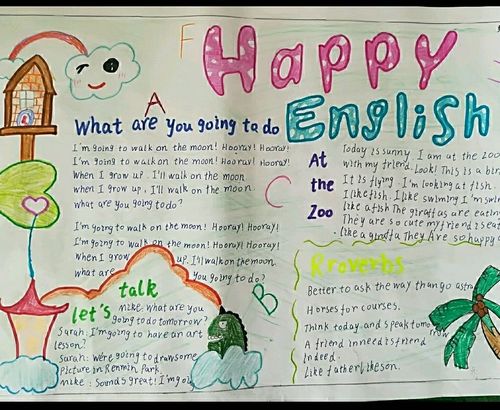 F
Happy
English
A
What are you going to do
I'm going to walk on the moon! Hooray! Hooray!
I'm going to walk on the moon! Hooray! Hooray!
When I grow up, I'll walk on the moon
when I grow up, I'll walk on the moon.
what are you going to do?
I'm going to walk on the moon! Hooray! Hooray!
I'm going to walk on the moon! Hooray! Hooray!
When I grow up. I'll walk on the moon.
what are you going to do?
C
At
the
Zoo
Today is sunny. I am at the zoo
with my friend. Look! This is a bir
It is flying. I'm looking at fish.
I like fish. I like swiming I'm swim
like a fish The giraffas are eatin
They are so cute my friend is eat
like a giraffa They Are so happy
B
let's talk
Mike: what are you
going to do tomorrow?
Sarah: I'm going to have an art
lesson?
Sarah: We're going to draw some
Picture in Renmin Park.
Mike: Sounds great! I'm go
Rroverbs
Better to ask the way than go astra
Horses for courses.
Think today and speak tomorrow
A friend in need is friend
indeed.
Like father like son.